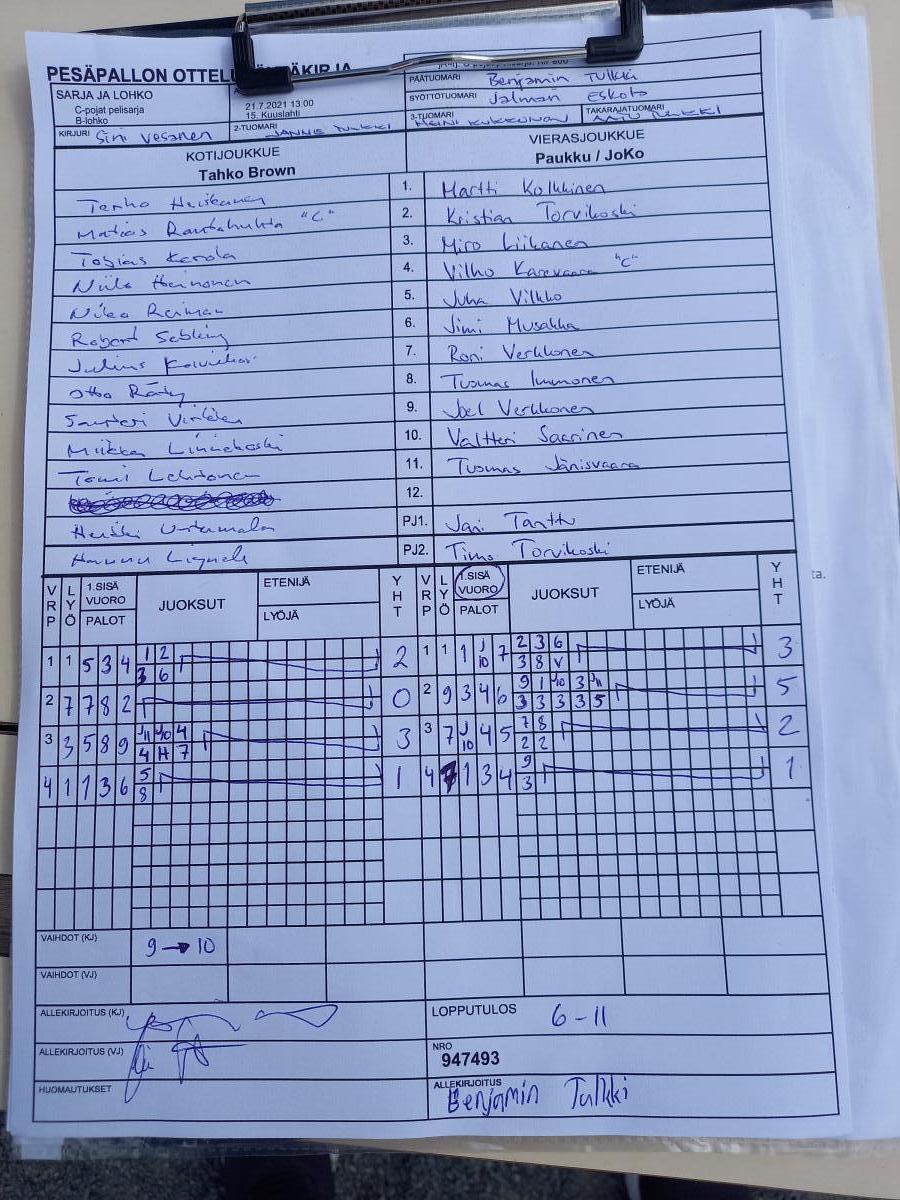 PESÄPALLON OTTELU
SARJA JA LOHKO
C-pojat pelisarja
B-lohko
21.7.2021 13:00
15. Kuuslahti
PÄÄTUOMARI Benjamin Tulkki
SYÖTTÖTUOMARI Jalmari Eskola
KIRJURI Sini Vesanen
2-TUOMARI JANNE TULKKI
3-TUOMARI HEINI KUKKONEN
TAKARAJATUOMARI AATU TULKKI
KOTIJOUKKUE
VIERASJOUKKUE
Tahko Brown
Paukku / JoKo
Terho Heiskanen 1. Martti Kolkkinen
Matias Rautahuhta "C" 2. Kristian Torvikoski
Tobias Karola 3. Miro Liikanen
Niilo Heinonen 4. Vilho Karevaara "C"
Niko Reiman 5. Juha Vilkko
Robert Sebling 6. Jimi Musakka
Julius 7. Roni Verkkonen
Otto Räty 8. Tuomas Immonen
Santeri 9. Joel Verkkonen
Miikka Linnakoski 10. Valtteri Saarinen
Tomi Lehtonen 11. Tuomas Jänisvaara
12.
Heikki PJ1. Jani Tanttu
Hannu PJ2. Timo Torvikoski
VRP LYÖ 1.SISÄ VUORO PALOT JUOKSUT ETENIJÄ LYÖJÄ YHT VRP LYÖ 1.SISÄ VUORO PALOT JUOKSUT ETENIJÄ LYÖJÄ YHT
1 1 5 3 4 1 2 2 1 1 1 J10 7 2 3 6 3
3 6 3 8 V
2 7 7 8 2 0 2 9 3 4 6 9 1 J10 3 J11 5
3 3 3 3 5
3 3 5 8 9 J11 J10 4 3 3 7 J10 4 5 7 8 2
4 H 7 2 2
4 1 1 3 6 5 1 4 7 1 3 4 9 1
8 3
VAIHDOT (KJ) 9 → 10
VAIHDOT (VJ)
ALLEKIRJOITUS (KJ)
LOPPUTULOS 6-11
ALLEKIRJOITUS (VJ)
NRO
947493
HUOMAUTUKSET
ALLEKIRJOITUS
Benjamin Tulkki